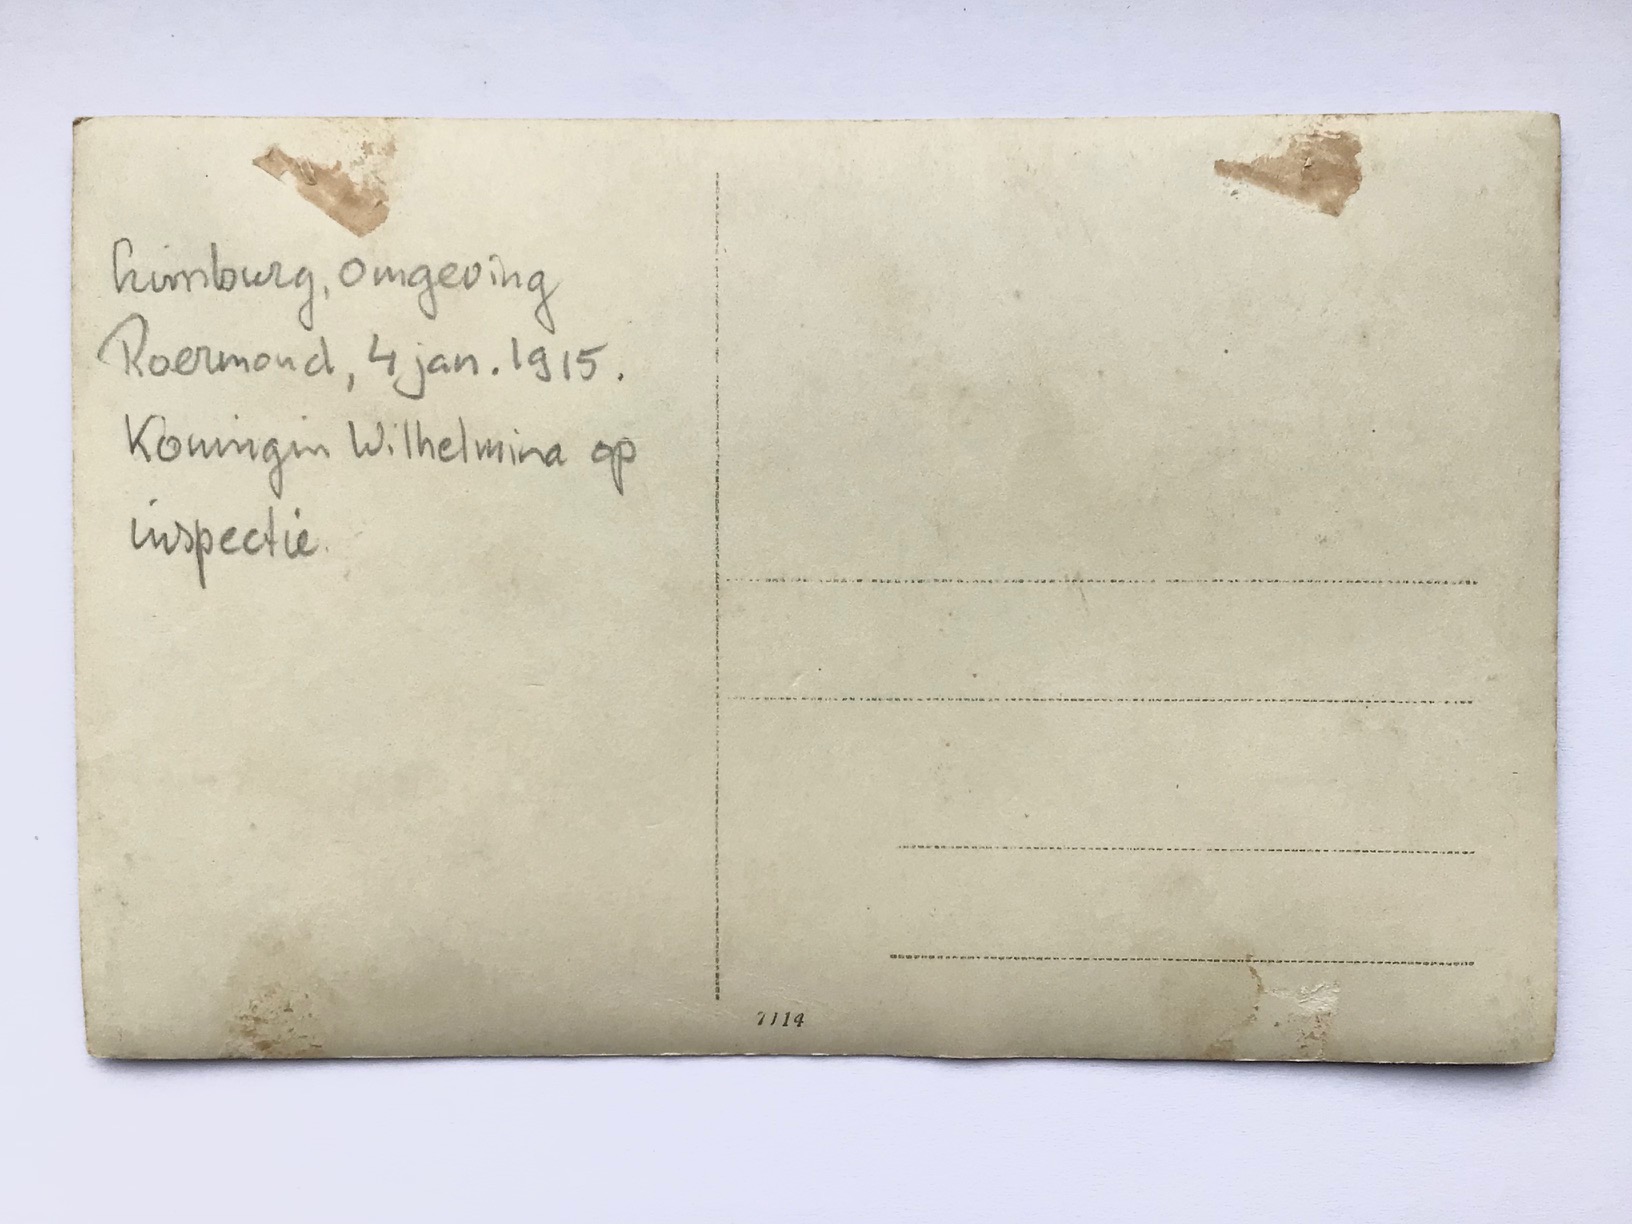 Limburg, omgeving
Roermond, 4 jan. 1915.
Koningin Wilhelmina op
inspectie.
7114